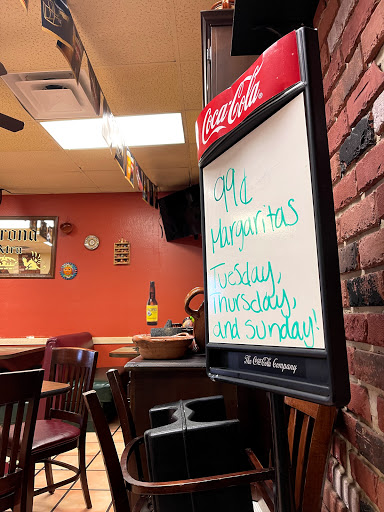 Coca-Cola
99¢
Margaritas
Tuesday,
Thursday,
and Sunday!
The Coca-Cola Company